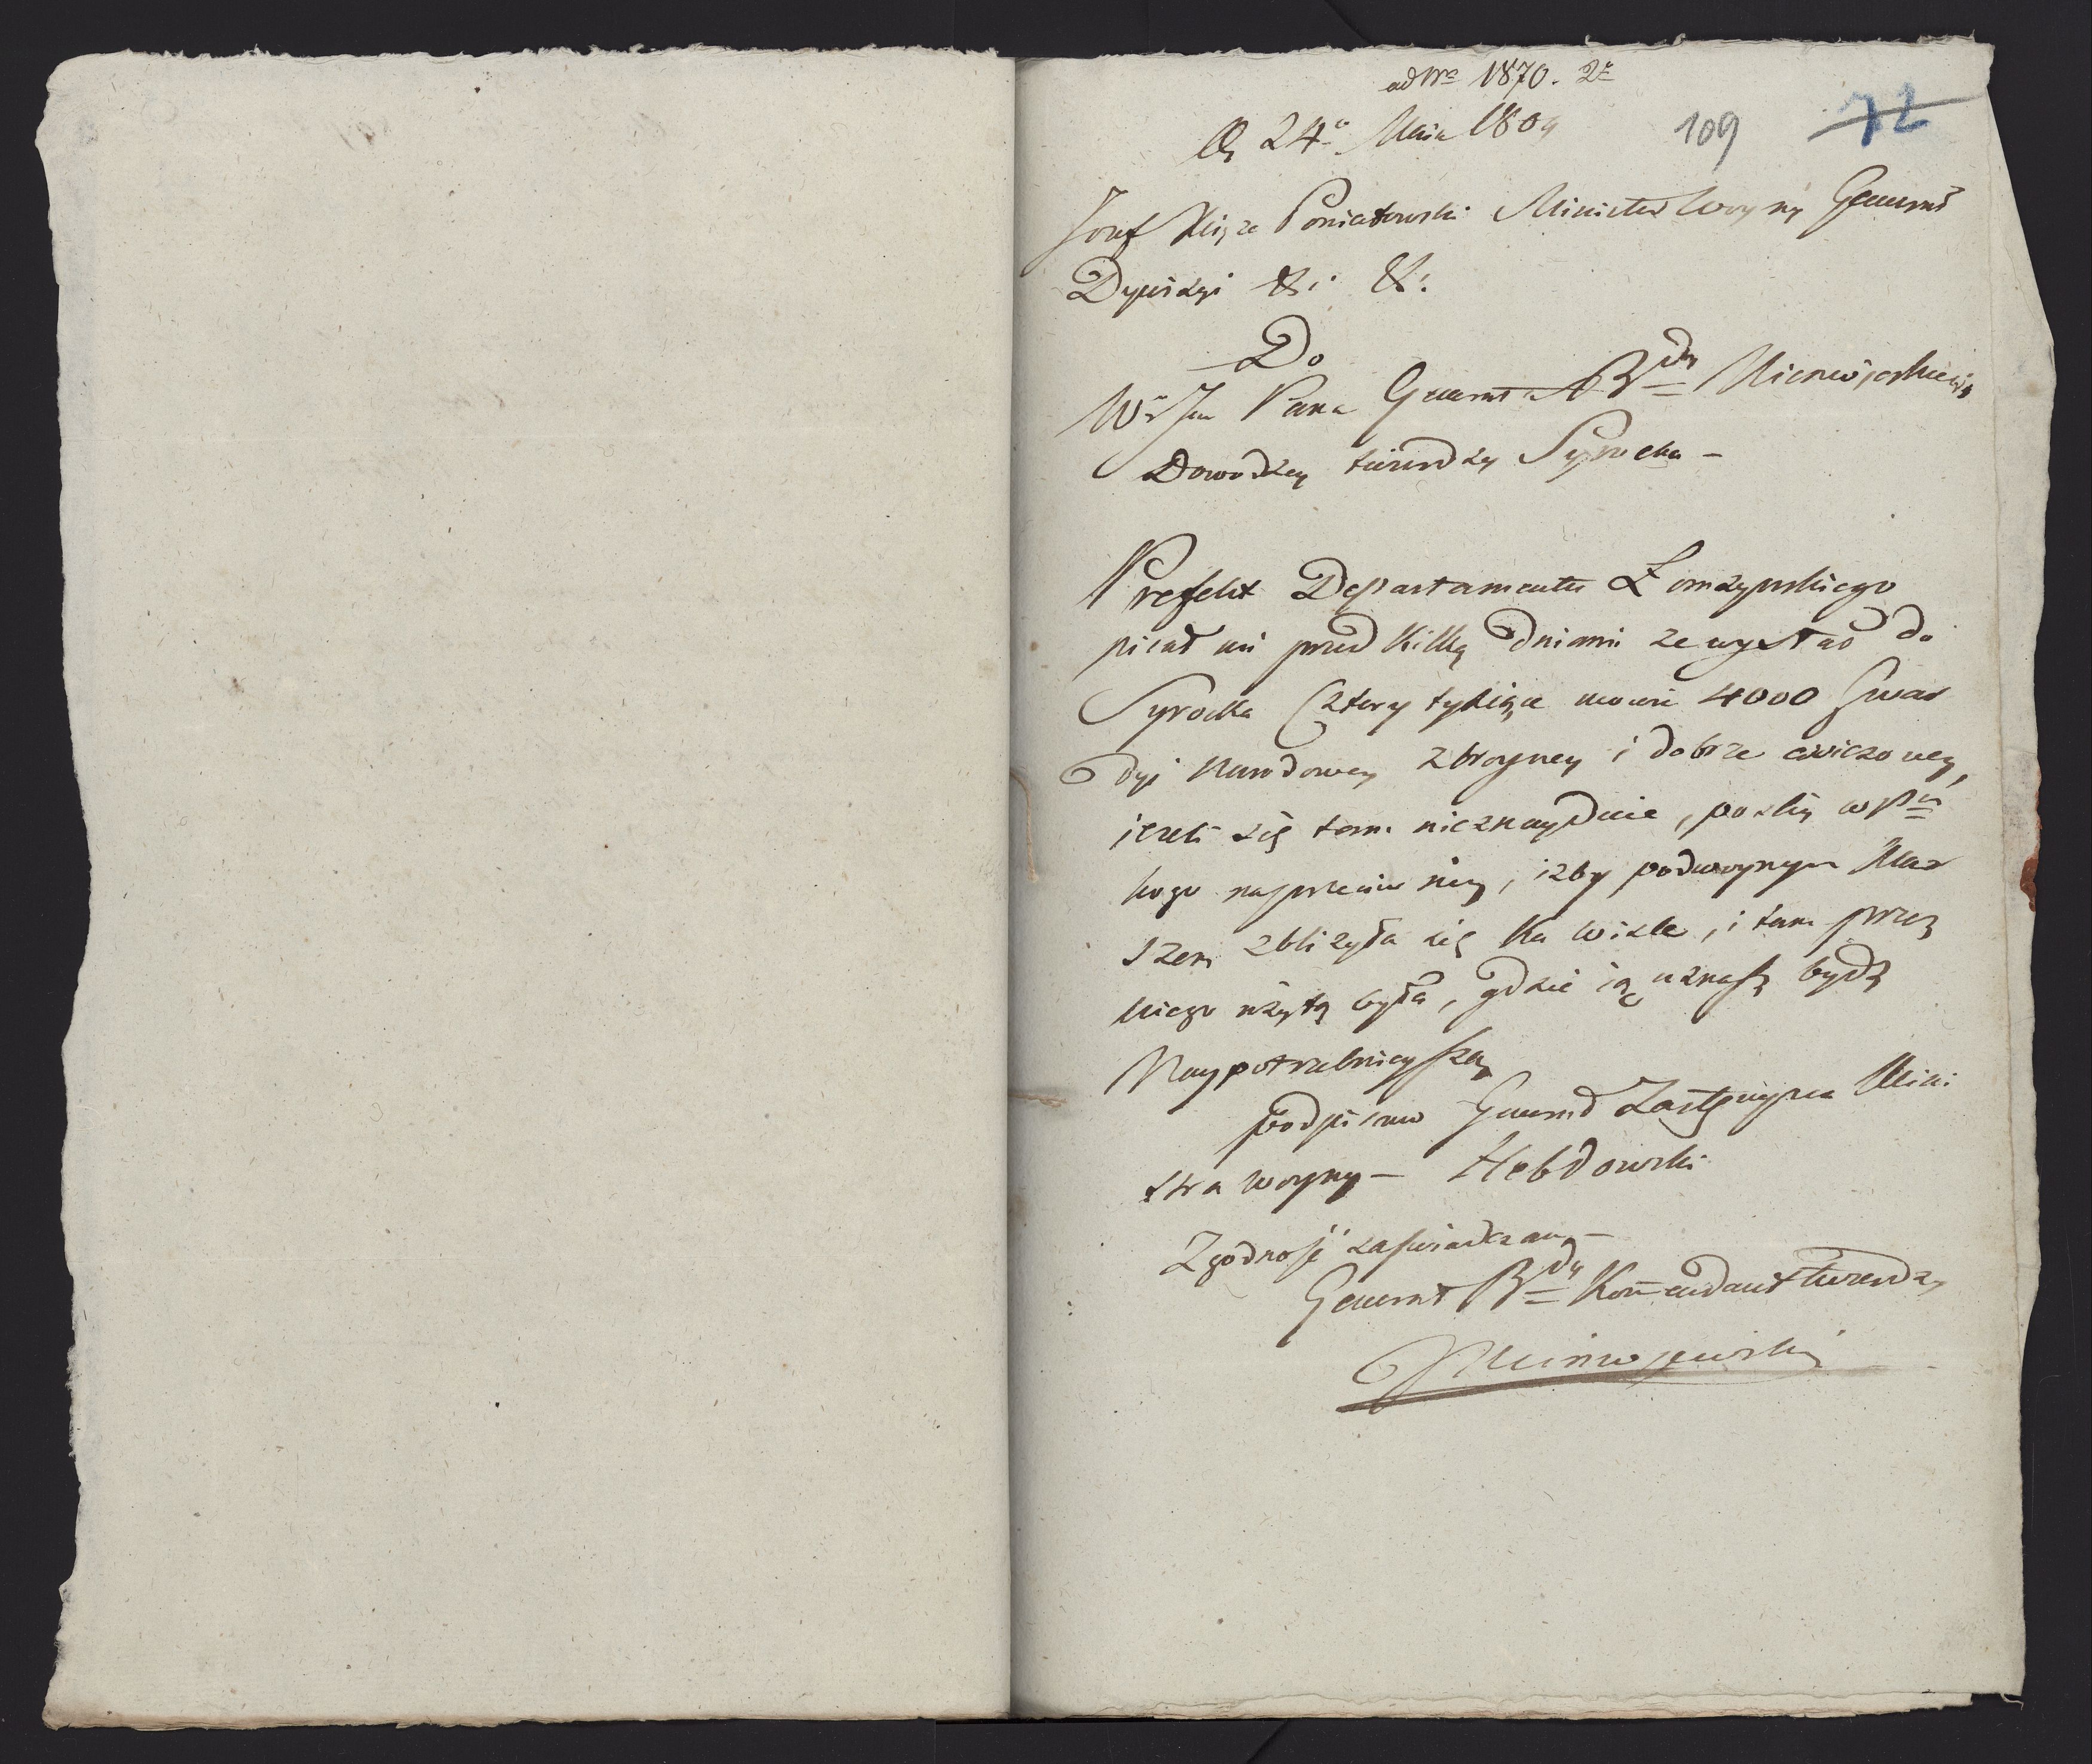 ad Nro 1870. 2o
D. 24o Maia 1809
109 72
Jozef Xiąże Poniatowski Minister Woyny Generał
Dywizyi &: &:
Do
W Jm Pana Generała Bdy Niemojewskiego
Dowodzcy twierdzy Syrocka –
Prefekt Departamentu Łomżynskiego
pisał mi przed kilką dniami ze wysłał do
Syrocka Cztery tysiące mowie 4000 Gwar
dyi Narodowey zbroyney i dobrze cwiczoney,
ieżeli się tam nieznayduie, poszli WPan
kogo naprzeciw niey, iżby podwoynym Mar
szem zbliżyła się ku Wisle, i tam przez
niego użytą była, gdzie ią uznasz bydz
Naypotrzebnieyszą
podpisano Generał Zastępuiący Mini
stra Woyny – Hebdowski
Zgodność zaswiadczam –
Generał Bdy Kommendant twierdzy
Niemojewski